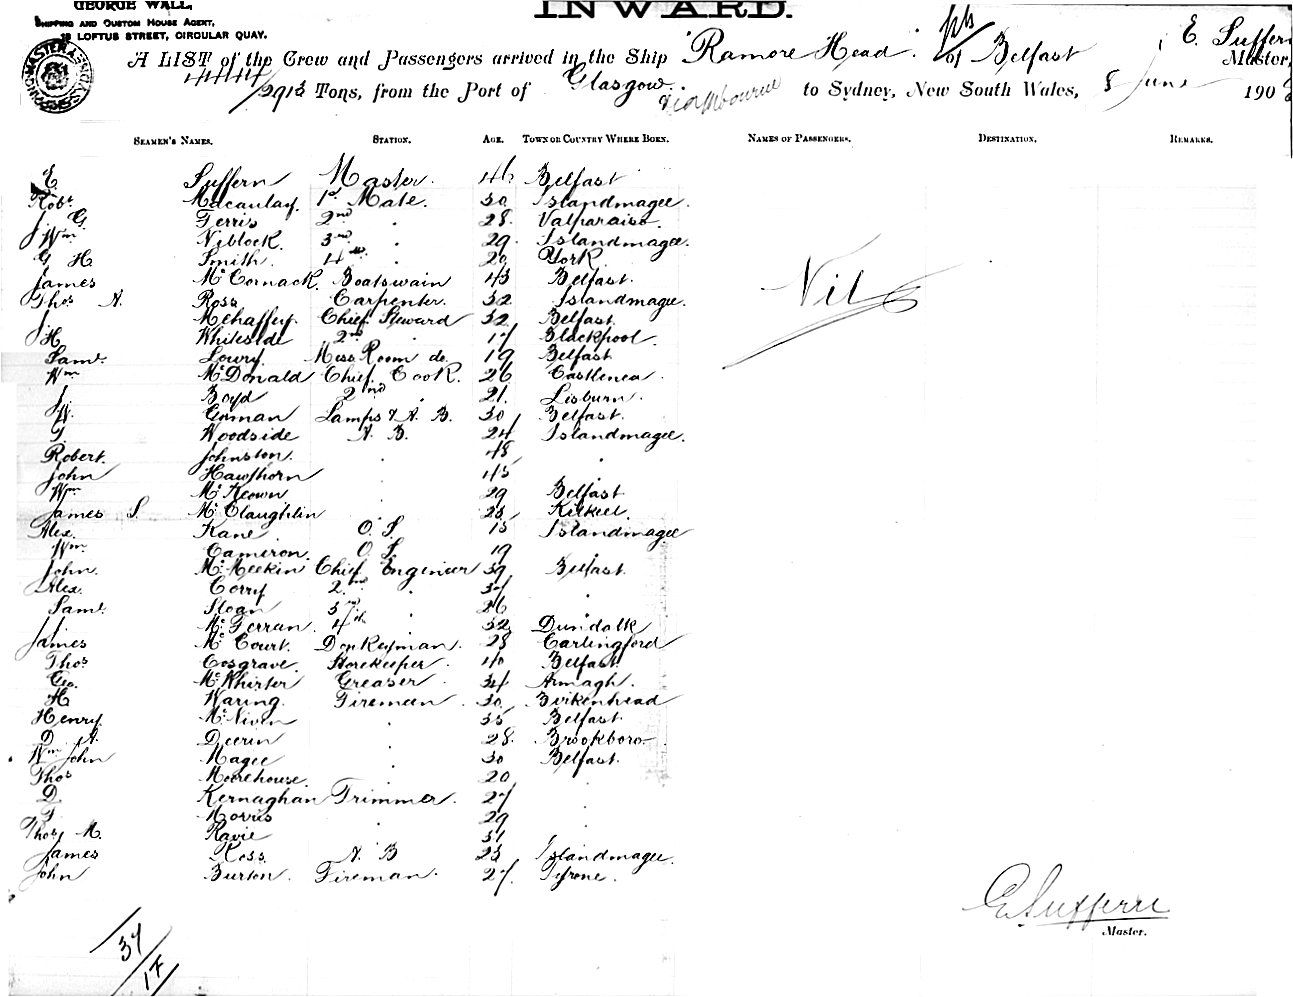 GEORGE WALL,
SHIPPING AND CUSTOM HOUSE AGENT,
18 LOFTUS STREET, CIRCULAR QUAY.
INWARD.
A LIST of the Crew and Passengers arrived in the Ship "Ramore Head". of Belfast, E. Suffern Master,
4444/2913 Tons, from the Port of Glasgow. via Melbourne to Sydney, New South Wales, 8 June 190
SEAMEN'S NAMES. STATION. AGE. TOWN OR COUNTRY WHERE BORN. NAMES OF PASSENGERS. DESTINATION. REMARKS.
E. Suffern Master. 46 Belfast
Robt. Macaulay. 1st Mate. 30 Islandmagee.
J. G. Ferris 2nd " 28. Valparaiso.
Wm Niblock. 3rd " 29. Islandmagee.
G H Smith. 4th " 20 York.
James McCormack. Boatswain 43 Belfast.
Thos A. Ross Carpenter. 32 Islandmagee.
J. Mehaffey. Chief Steward 32 Belfast.
H. Whiteside 2nd " 17 Blackpool.
Saml. Lowry. Mess Room do. 19 Belfast
Wm McDonald Chief Cook. 26 Castlerea.
J. Boyd 2nd " 21. Lisburn.
W. Gorman Lamps & A. B. 30 Belfast.
G Woodside A. B. 24 Islandmagee.
Robert. Johnston. " 48 "
John Hawthorn " 45 "
Wm McKeown " 29 Belfast
James S. McClaughlin " 25 Kilkeel.
Alex. Kane O. S. 18 Islandmagee
Wm Cameron. O. S. 19 "
John. McMeekin Chief Engineer 39 Belfast.
Alex. Corry 2nd " 37 "
Saml. Sloan 3rd " 26 "
J. McFerran 4th " 32 Dundalk
James McCourt. Donkeyman. 28 Carlingford
Thos Cosgrave. Storekeeper. 40 Belfast
Geo. McWhirter Greaser. 34 Armagh.
H Waring. Fireman. 30 Birkenhead
Henry McNiven " 35 Belfast.
D. A. Deerin " 28. Brookboro
Wm John Magee " 30 Belfast.
Thos Moorehouse. " 20 "
D Kernaghan Trimmer. 27 "
F Morris " 29 "
Thos M. Ravie " 31 "
James Ross. A. B 23 Islandmagee.
John Burton. Fireman. 27. Tyrone.
Nil
E. Suffern
Master.
37/17